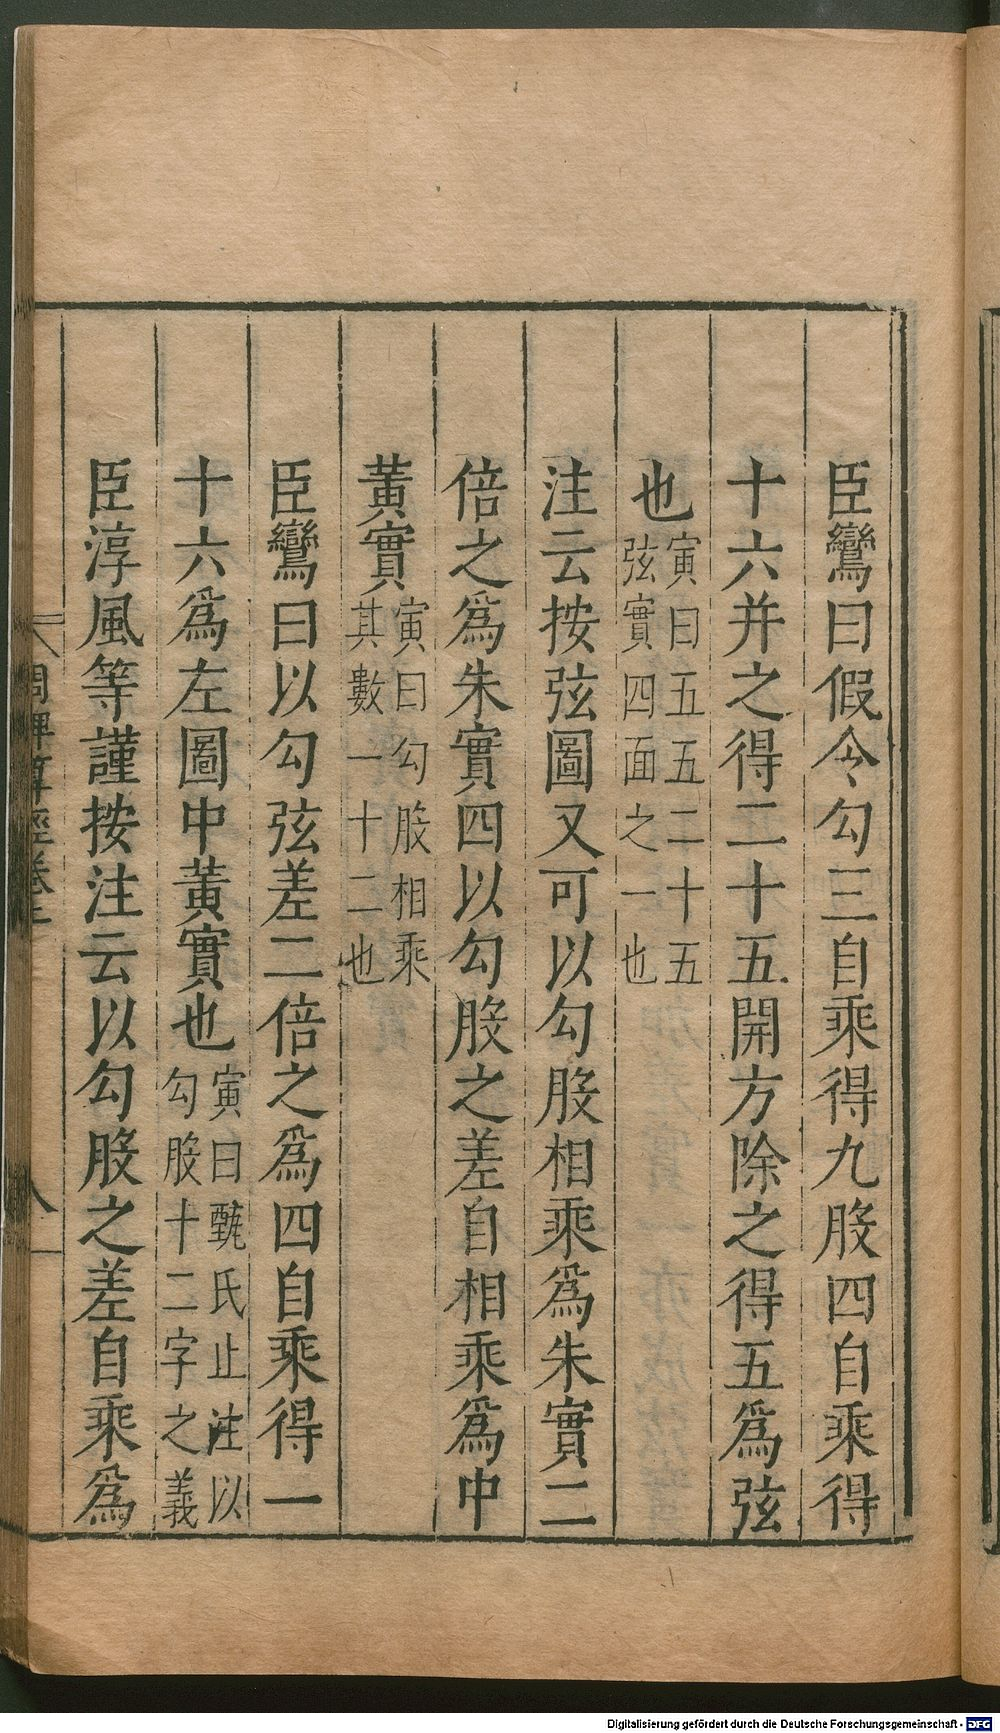 臣鸞曰假令勾三自乘得九股四自乘得
十六并之得二十五開方除之得五為弦
也寅曰五五二十五
弦實四面之一也
注云按弦圖又可以勾股相乘為朱實二
倍之為朱實四以勾股之差自相乘為中
黃實寅曰勾股相乘
其數一十二也
臣鸞曰以勾弦差二倍之為四自乘得一
十六為左圖中黃實也寅曰甄氏止注以
勾股十二字之義
臣淳風等謹按注云以勾股之差自乘為
周髀算經卷上
八
Digitalisierung gefördert durch die Deutsche Forschungsgemeinschaft - DFG